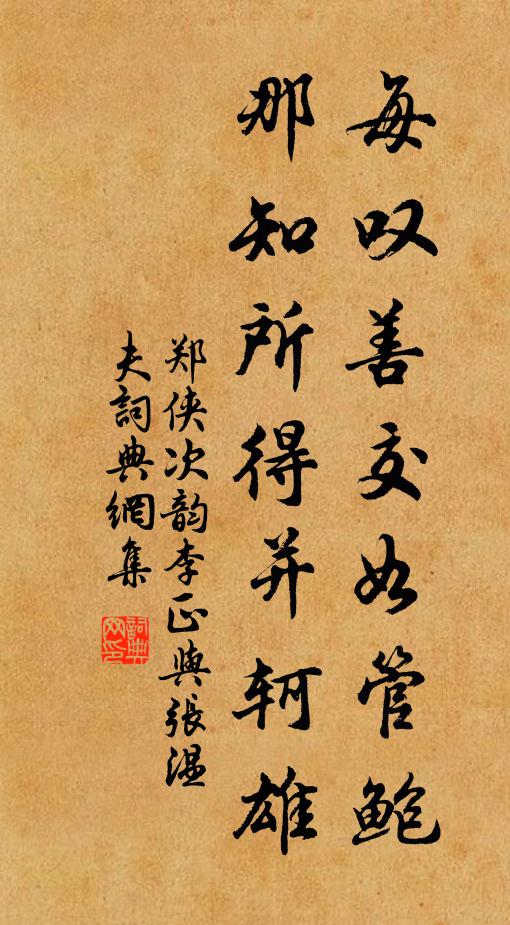 每叹善交如管鲍
那知所得并轲雄
郑侠次韵李正與張温
夫詞典網集
詞典
网印